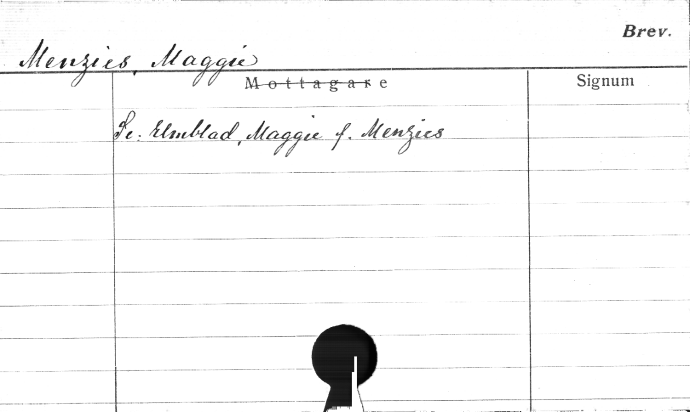 Brev.
Menzies, Maggie
Mottagare Signum
Se. Elmblad, Maggie f. Menzies